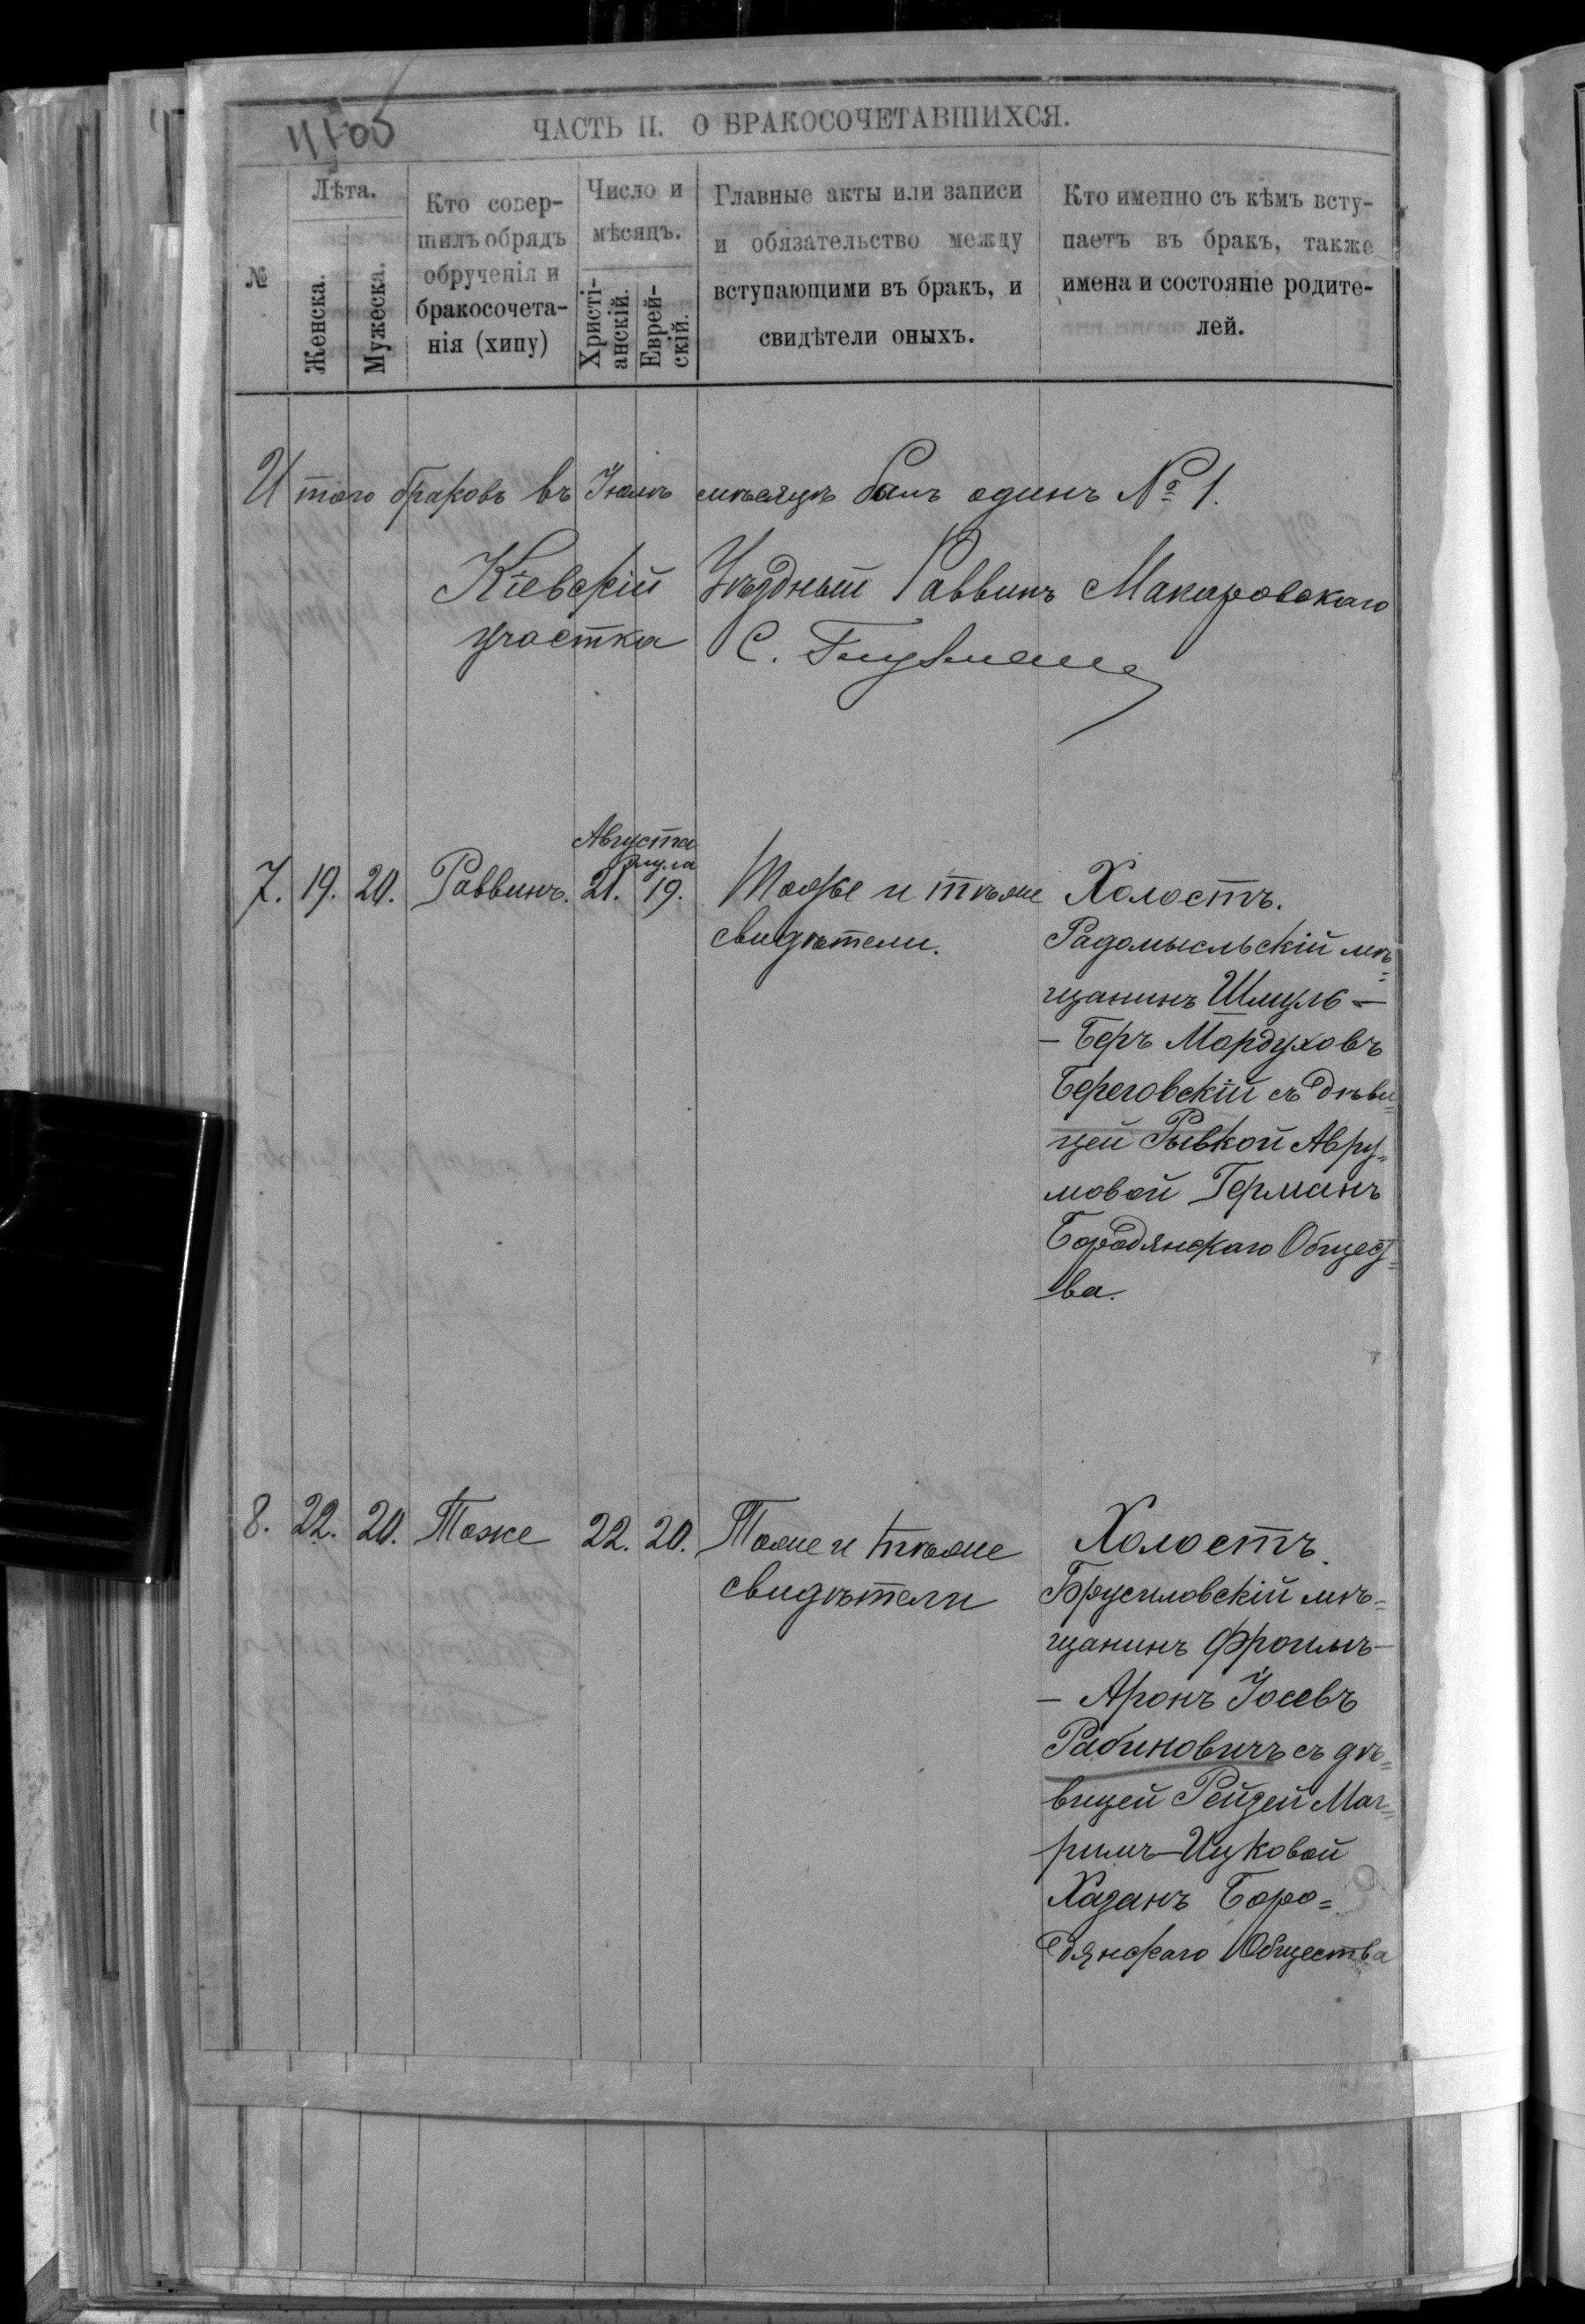 ЧАСТЬ II. О БРАКОСОЧЕТАВШИХСЯ.
№
Лѣта.
Женска.
Мужеска.
Кто совер-
шилъ обрядъ
обрученія и
бракосочета-
нія (хипу)
Число и
мѣсяцъ.
Христі-
анскій.
Еврей-
скій.
Главные акты или записи
и обязательство между
вступающими въ бракъ, и
свидѣтели оныхъ.
Кто именно съ кѣмъ всту-
паетъ въ бракъ, также
имена и состояніе родите-
лей.
Итого браковъ въ Іюлѣ мѣсяцѣ былъ одинъ № 1.
Кіевскій Уѣздный Раввинъ Макаровскаго
участка С.
Августа
Элула
7. 19. 20. Раввинъ. 21. 19. Тоже и тѣже
свидѣтели.
Холостъ.
Радомысльскій мѣ=
щанинъ Шмуль-
- Беръ Мордуховъ
Береговскій съ дѣви=
цей Рывкой Авру=
мовой Германъ
Бородянскаго Общест=
ва.
8. 22. 20. Тоже 22. 20. Тоже и тѣже
свидѣтели
Холостъ.
Брусиловскій мѣ=
щанинъ Фроимъ-
- Аронъ Іосевъ
Рабиновичъ съ дѣ=
вицей Рейзей Маг=
римъ-Ицковой
Хазанъ Боро=
дянскаго Общества